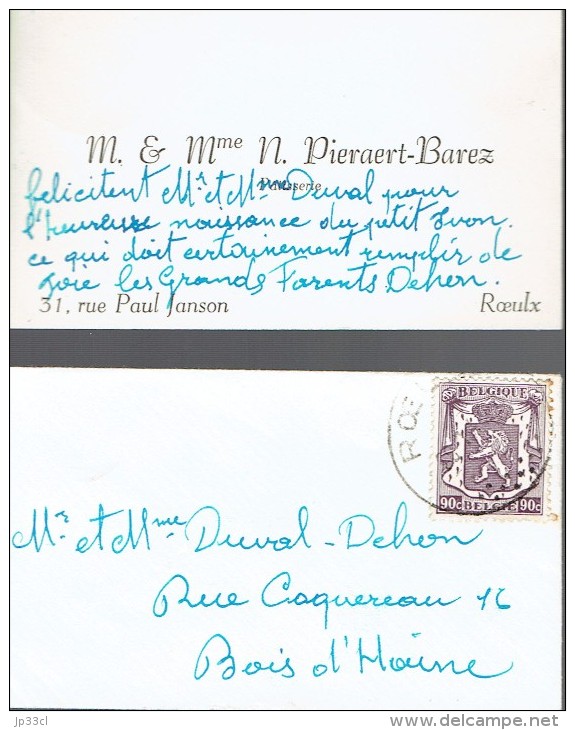 M. & Mme N. Pieraert-Barez
Pâtisserie
félicitent Mr et Mme Duval pour
l'heureuse naissance du petit Yvon.
ce qui doit certainement remplir de
joie les Grands Parents Dehon.
31, rue Paul Janson Rœulx
RŒ
BELGIQUE
90c BELGIE 90c
Mr et Mme Duval-Dehon
Rue Caquereau 16
Bois d'Haine
jp33cl
www.delcampe.net